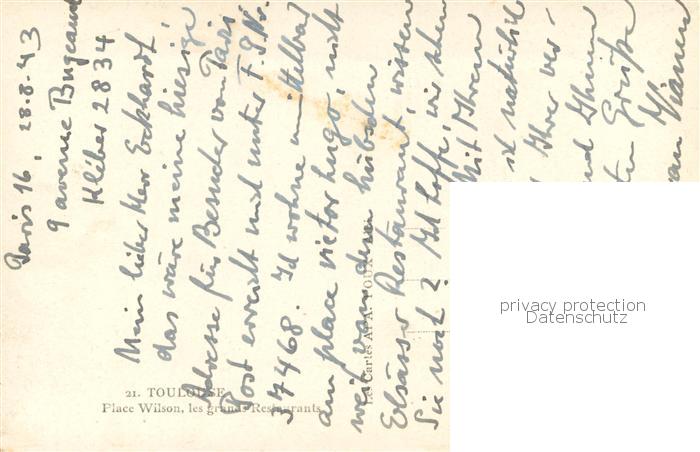 Paris 16, 28.8.43
9 avenue Bugeaud
Kléber 2834
Mein lieber Herr Eckhardt,
das wäre meine hiesige
Adresse für Besucher von Paris.
Post erreicht mich unter F.P.Nr.
37468. Ich wohne unmittelbar
am place victor hugo, nicht
weit von dem hübschen
Elsässer Restaurant, wissen
Sie noch? Ich hoffe, wir sehen
Mit Ihrem
ist natürlich
Ihrer ver-
und Ihnen
Grüße
21. TOULOUSE
Place Wilson, les grands Restaurants
Les Cartes Art A. POUX
privacy protection
Datenschutz